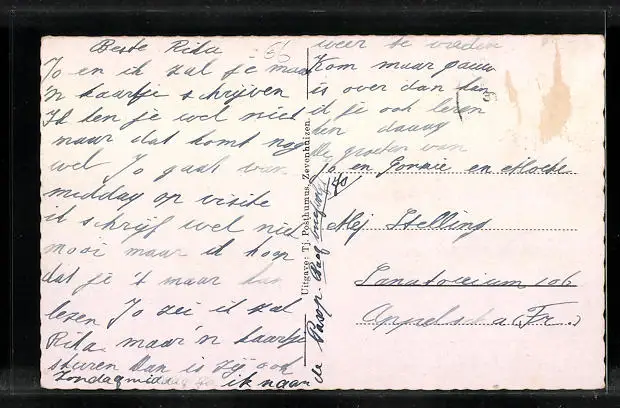 Beste Rika
Jo en ik zal je maar
'n kaartje schrijven
Ik ken je wel niet
maar dat komt nog
wel Jo gaat van
middag op visite
ik schrijf wel niet
mooi maar ik hoop
dat je 't maar kan
lezen Jo zei ik zal
Rika maar 'n kaartje
sturen dan is zij ook
Zondagmiddag ik naar
weer te vreden
Kom maar gauw
is over dan kan
ik je ook leren
ken daaag
de groeten van
Jo en en Moeke
Uitgave: Tj. Posthumus, Zevenhuizen.
140
Mej Stelling
Sanatorium 106
Appelscha (Fr.)